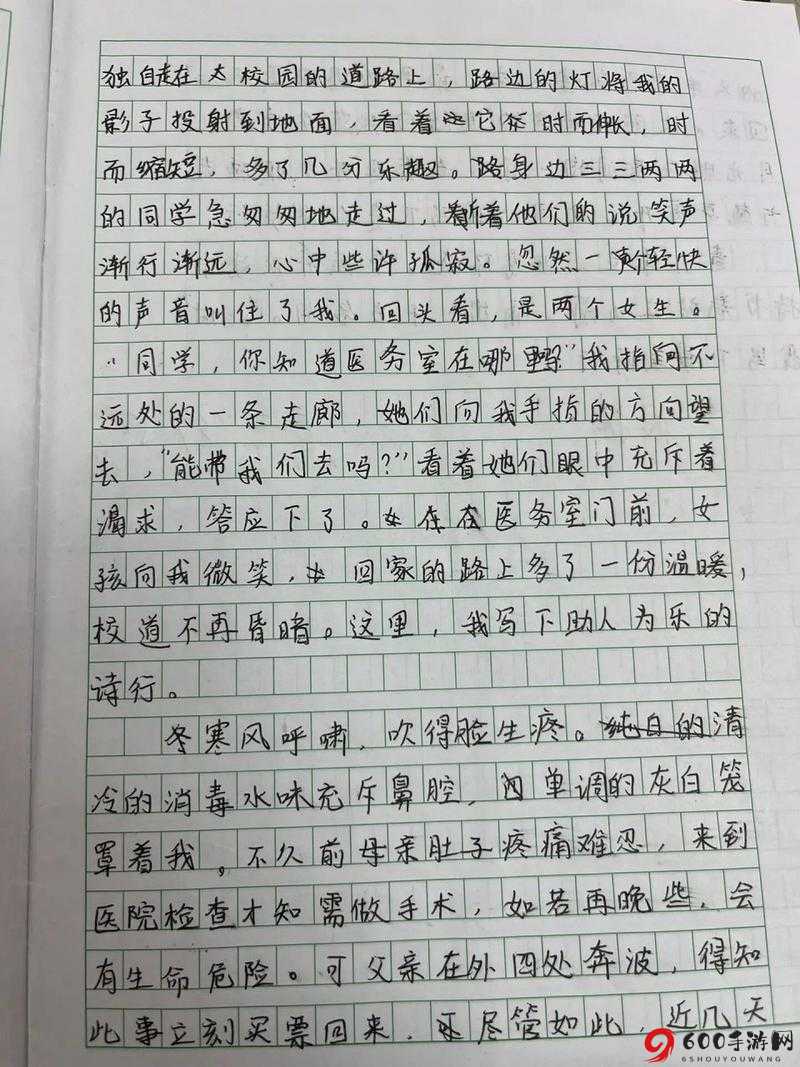 独自走在校园的道路上，路边的灯将我的
影子投射到地面，看着它时而伸长，时
而缩短，多了几分乐趣。路身边三三两两
的同学急匆匆地走过，听着他们的说笑声
渐行渐远，心中些许孤寂。忽然一个轻快
的声音叫住了我。回头看，是两个女生。
“同学，你知道医务室在哪里吗？”我指向不
远处的一条走廊，她们向我手指的方向望
去，“能带我们去吗？”看着她们眼中充斥着
渴求，答应下了。在医务室门前，女
孩向我微笑，回家的路上多了一份温暖，
校道不再昏暗。这里，我写下助人为乐的
诗行。
冬寒风呼啸，吹得脸生疼。清
冷的消毒水味充斥鼻腔，单调的灰白笼
罩着我。不久前母亲肚子疼痛难忍，来到
医院检查才知需做手术，如若再晚些，会
有生命危险。可父亲在外四处奔波，得知
此事立刻买票回来，尽管如此，近几天
600手游网
6SHOUYOUWANG